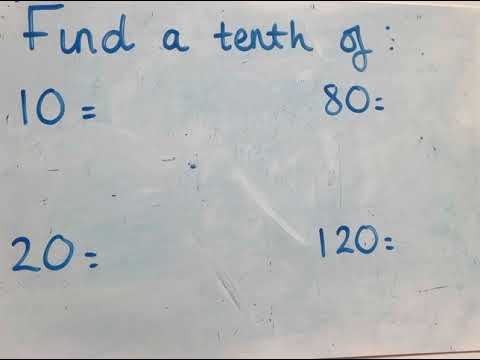 Find a tenth of :
10 = 80=
20 = 120=